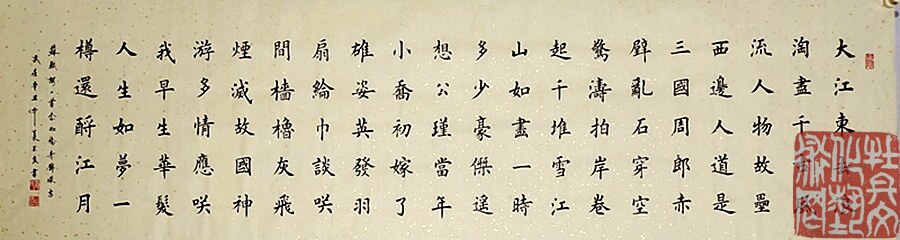 大江東去浪
淘盡千古風
流人物故壘
西邊人道是
三國周郎赤
壁亂石穿空
驚濤拍岸卷
起千堆雪江
山如畫一時
多少豪傑遥
想公瑾當年
小喬初嫁了
雄姿英發羽
扇綸巾談咲
間檣櫓灰飛
煙滅故國神
游多情應咲
我早生華髮
人生如夢一
樽還酹江月
蘇軾詞一首念奴嬌赤壁懷古
辛丑仲夏書